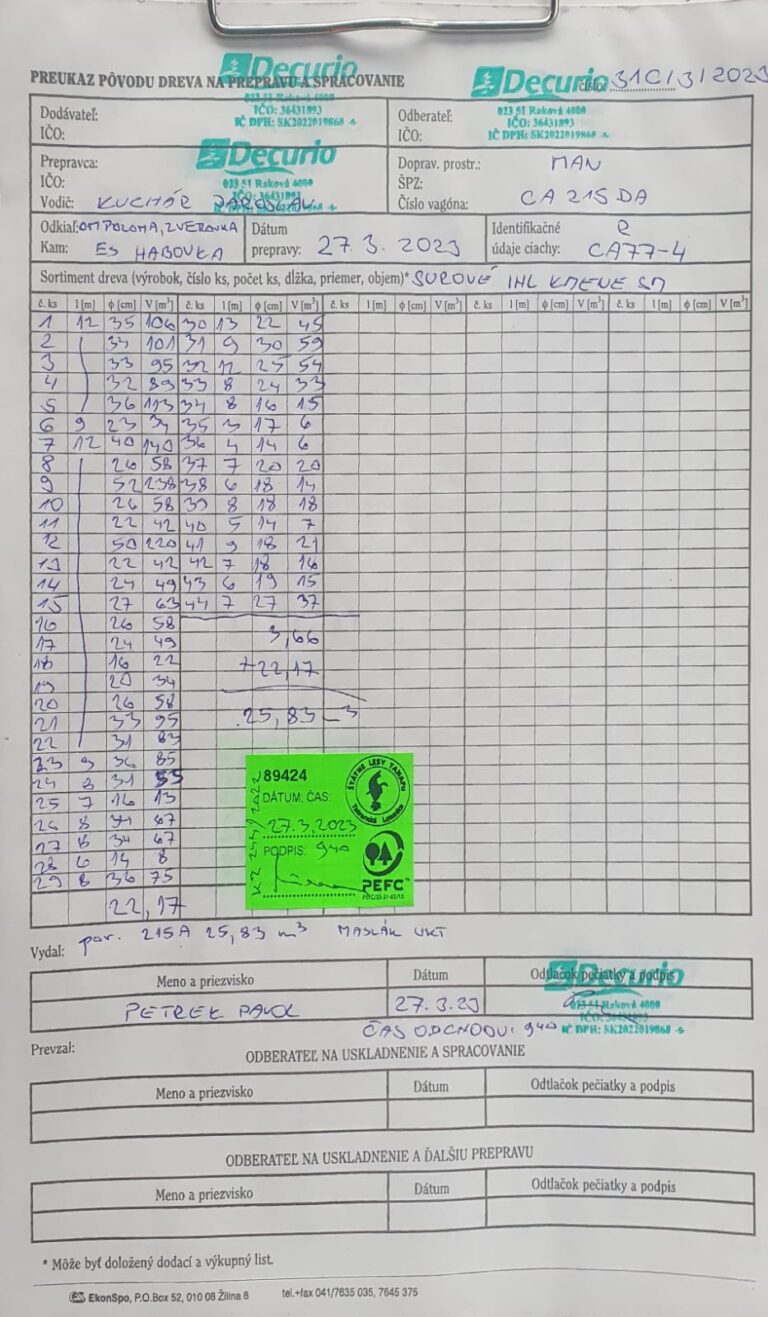 Decurio
PREUKAZ PÔVODU DREVA NA PREPRAVU A SPRACOVANIE
Decurio číslo: 310/3/2023
Dodávateľ: 023 51 Raková 4000 Odberateľ: 023 51 Raková 4000
IČO: IČO: 36431893 IČO: IČO: 36431893
IČ DPH: SK2022019868 IČ DPH: SK2022019868
Prepravca: Decurio Doprav. prostr.: MAN
IČO: 023 51 Raková 4000 ŠPZ:
Vodič: KUCHÁR JAROSLAV Číslo vagóna: CA 215 DA
Odkiaľ: OM POLOMA, ZVEROVKA Dátum Identifikačné R
Kam: ES HABOVKA prepravy: 27.3. 2023 údaje ciachy: CA77-4
Sortiment dreva (výrobok, číslo ks, počet ks, dĺžka, priemer, objem)* SUROVÉ IHL KMENE SM
č. ks l [m] ϕ [cm] V [m³] č. ks l [m] ϕ [cm] V [m³] č. ks l [m] ϕ [cm] V [m³] č. ks l [m] ϕ [cm] V [m³] č. ks l [m] ϕ [cm] V [m³]
1 12 35 106 30 13 22 45
2 34 101 31 9 30 59
3 33 95 32 12 25 54
4 32 89 33 8 24 33
5 36 113 34 8 16 15
6 9 23 34 35 3 17 6
7 12 40 140 36 4 14 6
8 26 58 37 7 20 20
9 52 238 38 6 18 14
10 26 58 39 8 18 18
11 22 42 40 5 14 7
12 50 220 41 9 18 21
13 22 42 42 7 18 16
14 24 49 43 6 19 15
15 27 63 44 7 27 37
16 26 58
17 24 49 3,66
18 16 22 +22,17
19 20 34
20 26 58
21 33 95 25,83 m3
22 31 83
23 9 36 85
24 8 31 55
25 7 16 13
26 8 34 67
27 8 34 67
28 6 14 8
29 8 36 75
22,17
89424
ŠTÁTNE LESY TANAPU
Tatranská Lomnica
DÁTUM, ČAS:
27.3.2023
PODPIS: 940
PEFC
Vydal: por. 215A 25,83 m³ MASLÁK UKT
Meno a priezvisko Dátum Odtlačok pečiatky a podpis
Decurio
PETREK PAVOL 27.3.23 023 51 Raková 4000
ČAS ODCHODU: 940 IČ DPH: SK2022019868
Prevzal:
ODBERATEĽ NA USKLADNENIE A SPRACOVANIE
Meno a priezvisko Dátum Odtlačok pečiatky a podpis
ODBERATEĽ NA USKLADNENIE A ĎALŠIU PREPRAVU
Meno a priezvisko Dátum Odtlačok pečiatky a podpis
* Môže byť doložený dodací a výkupný list.
EkonSpo, P.O.Box 52, 010 08 Žilina 8 tel.+fax 041/7635 035, 7645 375